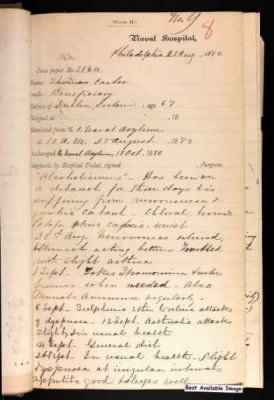 No 9
8
(FORM H.)
Naval Hospital,
Philadelphia 25 Aug. 1880
Case paper No. 2864
Name: Thomas
Rank: Beneficiary
Native of Dublin, Ireland; age 67
Shipped at , 18
Admitted from U.S. Naval Asylum
at 10 A.M. 25 August 1880
Discharged to Naval Asylum, 18 Oct. 1880
Diagnosis by Hospital Ticket, signed Surgeon.
"Alcoholismus". Has been on
a debauch for three days & is
suffering from nervousness &
gastric catarrh. Chloral, bromide
rest
28th Aug. Nervousness relieved,
stomach acting better. Troubled
with slight asthma
1 Sept. Takes Stramonium
when needed. Also
regularly.
6 Sept. ether to relieve attacks
of dyspnoea. 12 Sept. Asthmatic attacks
slight, in usual health
14 Sept. General diet
26 Sept. In usual health. Slight
dyspnoea at irregular intervals
appetite good & sleeps well
Best Available Image